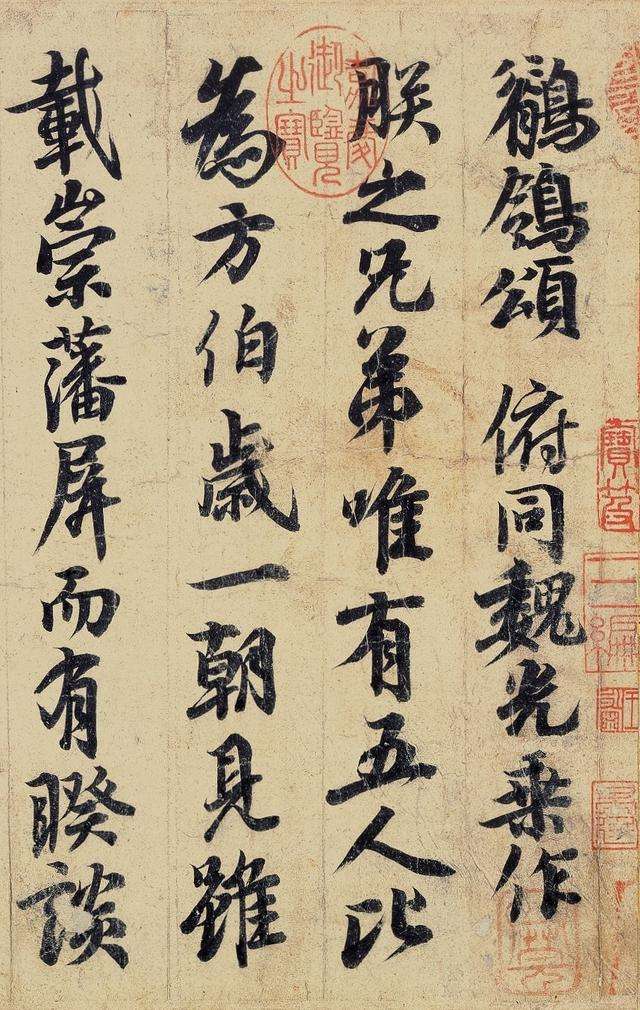 鶺鴒頌 俯同魏光乗作
朕之兄弟唯有五人比
為方伯歳一朝見雖
載崇藩屏而有睽談
嘉慶御覽之寶